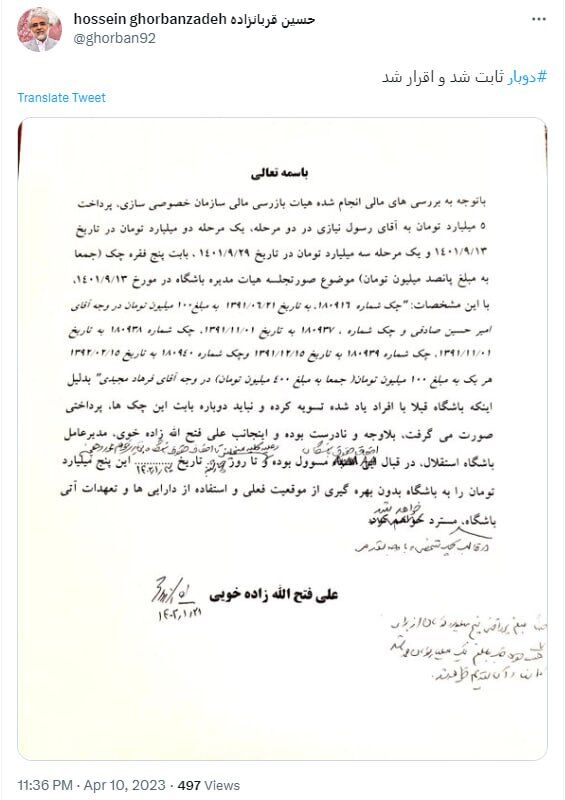 hossein ghorbanzadeh حسین قربانزاده
@ghorban92
#دوبار ثابت شد و اقرار شد
Translate Tweet
باسمه تعالی
باتوجه به بررسی های مالی انجام شده هیات بازرسی مالی سازمان خصوصی سازی، پرداخت
۵ میلیارد تومان به آقای رسول نیازی در دو مرحله، یک مرحله دو میلیارد تومان در تاریخ
۱۴۰۱/۹/۱۳ و یک مرحله سه میلیارد تومان در تاریخ ۱۴۰۱/۹/۲۹، بابت پنج فقره چک (جمعا
به مبلغ پانصد میلیون تومان) موضوع صورتجلسه هیات مدیره باشگاه در مورخ ۱۴۰۱/۹/۱۳،
با این مشخصات: "چک شماره ۱۸۰۹۱۶، به تاریخ ۱۳۹۱/۰۶/۲۱ به مبلغ ۱۰۰ میلیون تومان در وجه آقای
امیر حسین صادقی و چک شماره ۱۸۰۹۳۷، به تاریخ ۱۳۹۱/۱۱/۰۱، چک شماره ۱۸۰۹۳۸ به تاریخ
۱۳۹۱/۱۱/۰۱، چک شماره ۱۸۰۹۳۹ به تاریخ ۱۳۹۱/۱۲/۱۵ وچک شماره ۱۸۰۹۴۰ به تاریخ ۱۳۹۲/۰۲/۱۵
هر یک به مبلغ ۱۰۰ میلیون تومان( جمعا به مبلغ ۴۰۰ میلیون تومان) در وجه آقای فرهاد مجیدی" بدلیل
اینکه باشگاه قبلا با افراد یاد شده تسویه کرده و نباید دوباره بابت این چک ها، پرداختی
صورت می گرفت، بلاوجه و نادرست بوده و اینجانب علی فتح الله زاده خوی، مدیرعامل
باشگاه استقلال، در قبال مسوول بوده و تا روز تاریخ ............ این پنج میلیارد
۱۴۰۲/۱/۳۱
تومان را به باشگاه بدون بهره گیری از موقعیت فعلی و استفاده از دارایی ها و تعهدات آتی
خواهد شد
باشگاه، مسترد خواهم کرد.
علی فتح الله زاده خویی
۱۴۰۲,۱,۲۱
11:36 PM · Apr 10, 2023 · 497 Views